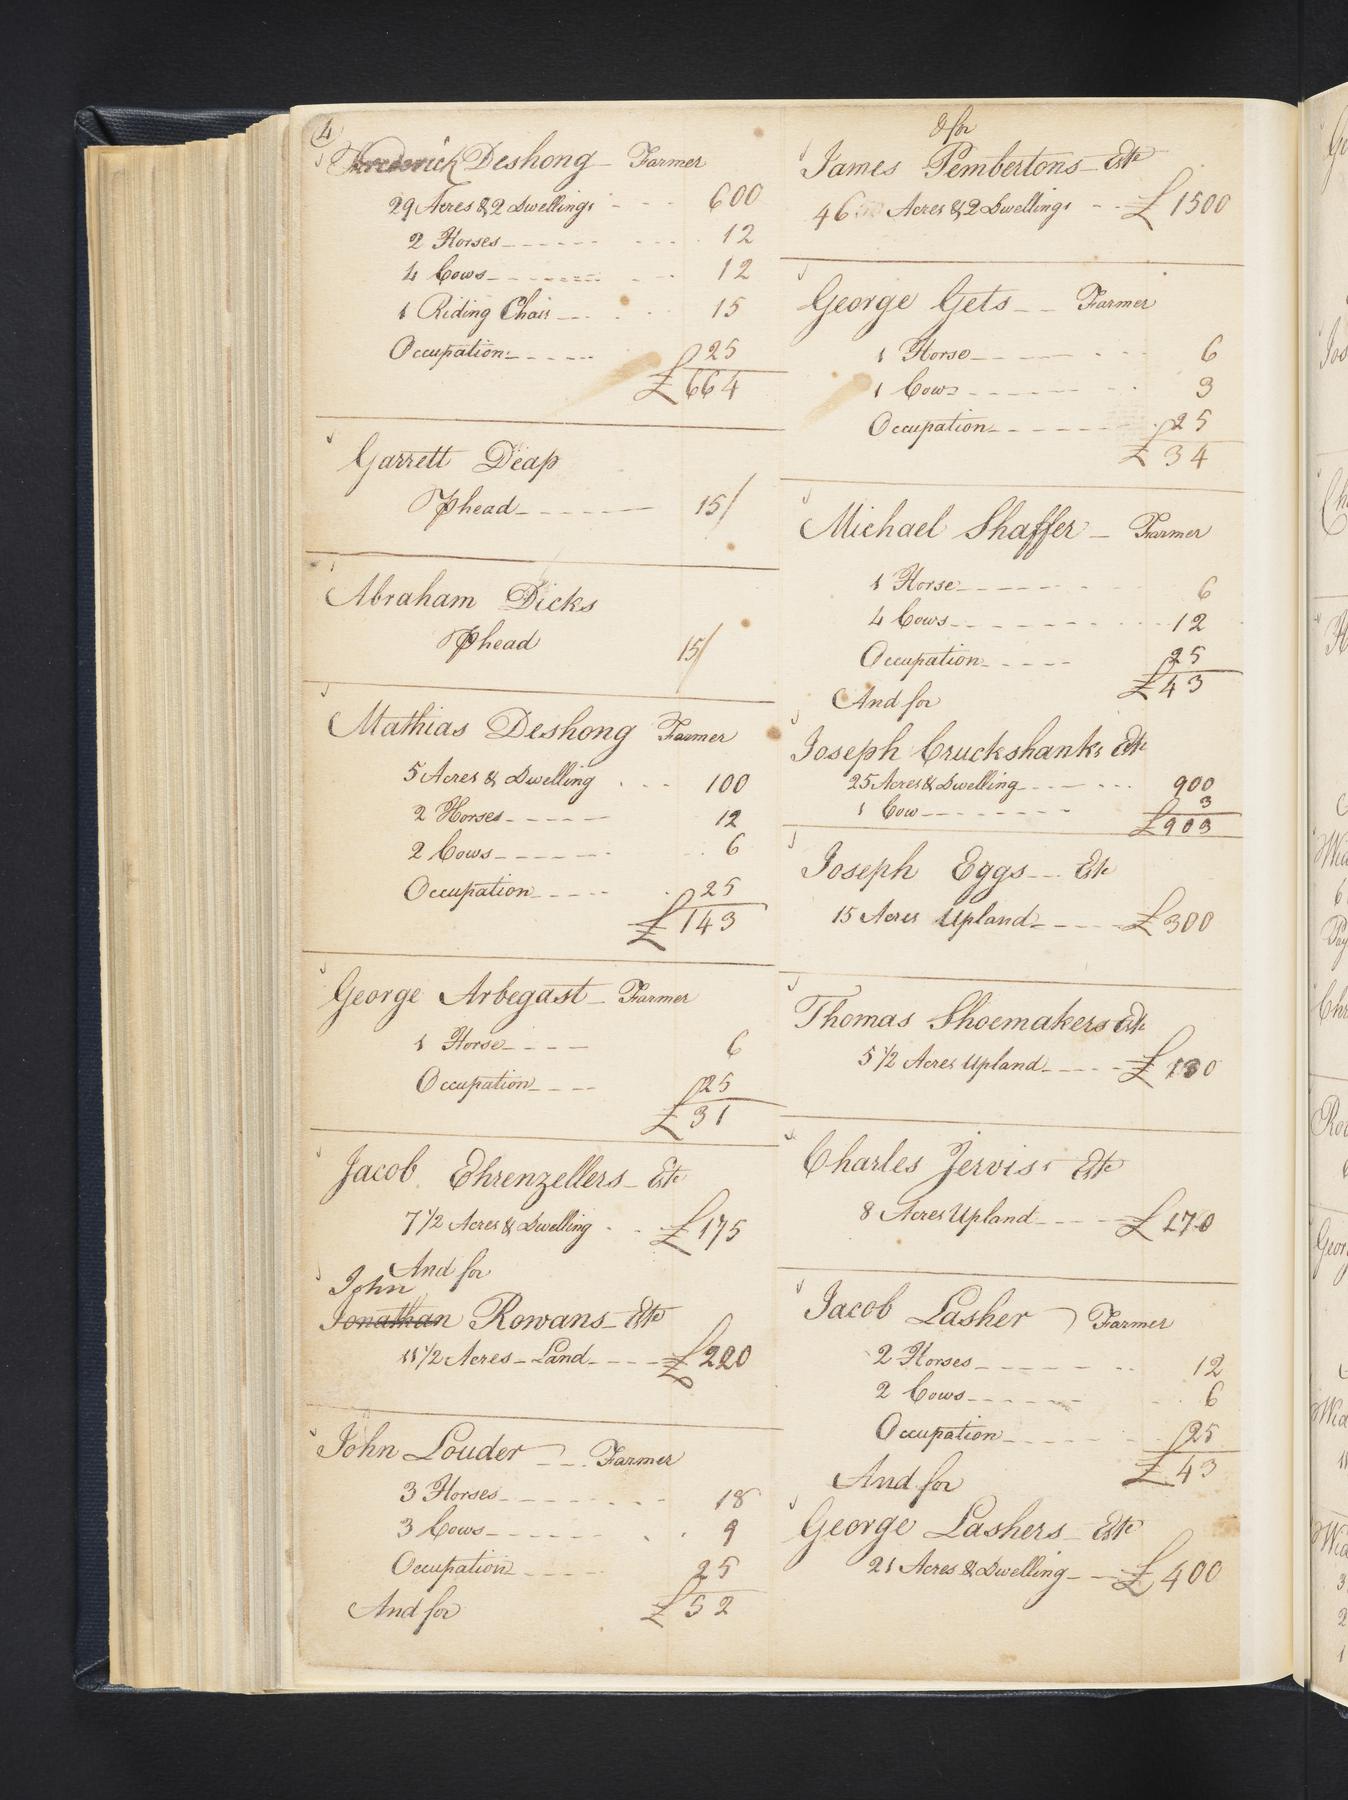 4
Frederick Deshong Farmer
29 Acres & 2 Dwellings 600
2 Horses 12
4 Cows 12
1 Riding Chair 15
Occupation 25
£ 664
Garrett Deap
P head 15/
Abraham Dicks
P head 15/
Mathias Deshong Farmer
5 Acres & Dwelling 100
2 Horses 12
2 Cows 6
Occupation 25
£ 143
George Arbegast Farmer
1 Horse 6
Occupation 25
£ 31
Jacob Ehrenzellers Este
7 1/2 Acres & Dwelling £ 175
And for
John
Jonathan Rowans Este
11 1/2 Acres Land £ 220
John Louder Farmer
3 Horses 18
3 Cows 9
Occupation 25
£ 52
And for
& for
James Pembertons Este
46 Acres & 2 Dwellings £ 1500
George Gets Farmer
1 Horse 6
1 Cows 3
Occupation 25
£ 34
Michael Shaffer Farmer
1 Horse 6
4 Cows 12
Occupation 25
£ 43
And for
Joseph Cruckshanks Este
25 Acres & Dwelling 900
1 Cow 3
£ 903
Joseph Eggs Este
15 Acres Upland £ 300
Thomas Shoemakers Este
5 1/2 Acres Upland £ 130
Charles Jervis's Este
8 Acres Upland £ 170
Jacob Lasher Farmer
2 Horses 12
2 Cows 6
Occupation 25
£ 43
And for
George Lashers Este
21 Acres & Dwelling £ 400